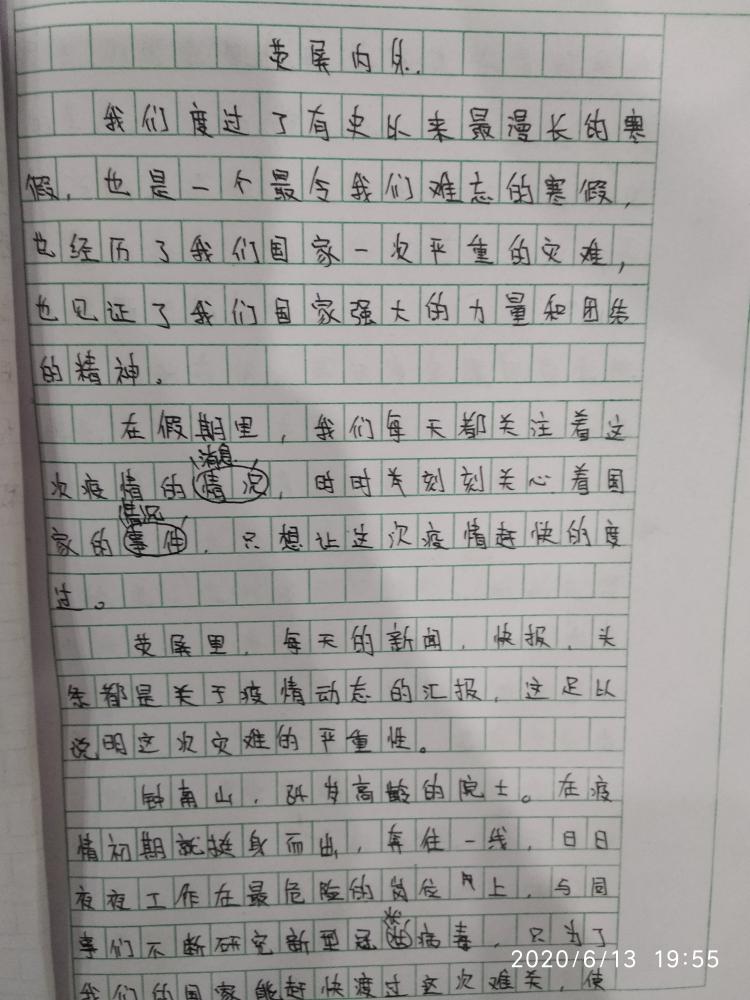 荧屏内外
我们度过了有史以来最漫长的寒
假，也是一个最令我们难忘的寒假，
也经历了我们国家一次严重的灾难，
也见证了我们国家强大的力量和团结
的精神。
在假期里，我们每天都关注着这
消息
次疫情的情况，时时关刻刻关心着国
情况
家的事件，只想让这次疫情赶快的度
过。
荧屏里，每天的新闻，快报，头
条都是关于疫情动态的汇报，这足以
说明这次灾难的严重性。
钟南山，84岁高龄的院士。在疫
情初期就挺身而出，奔往一线，日日
夜夜工作在最危险的岗位上，与同
状
事们不断研究新型冠病毒，只为了
我们的国家能赶快渡过这次难关，使
2020/6/13 19:55